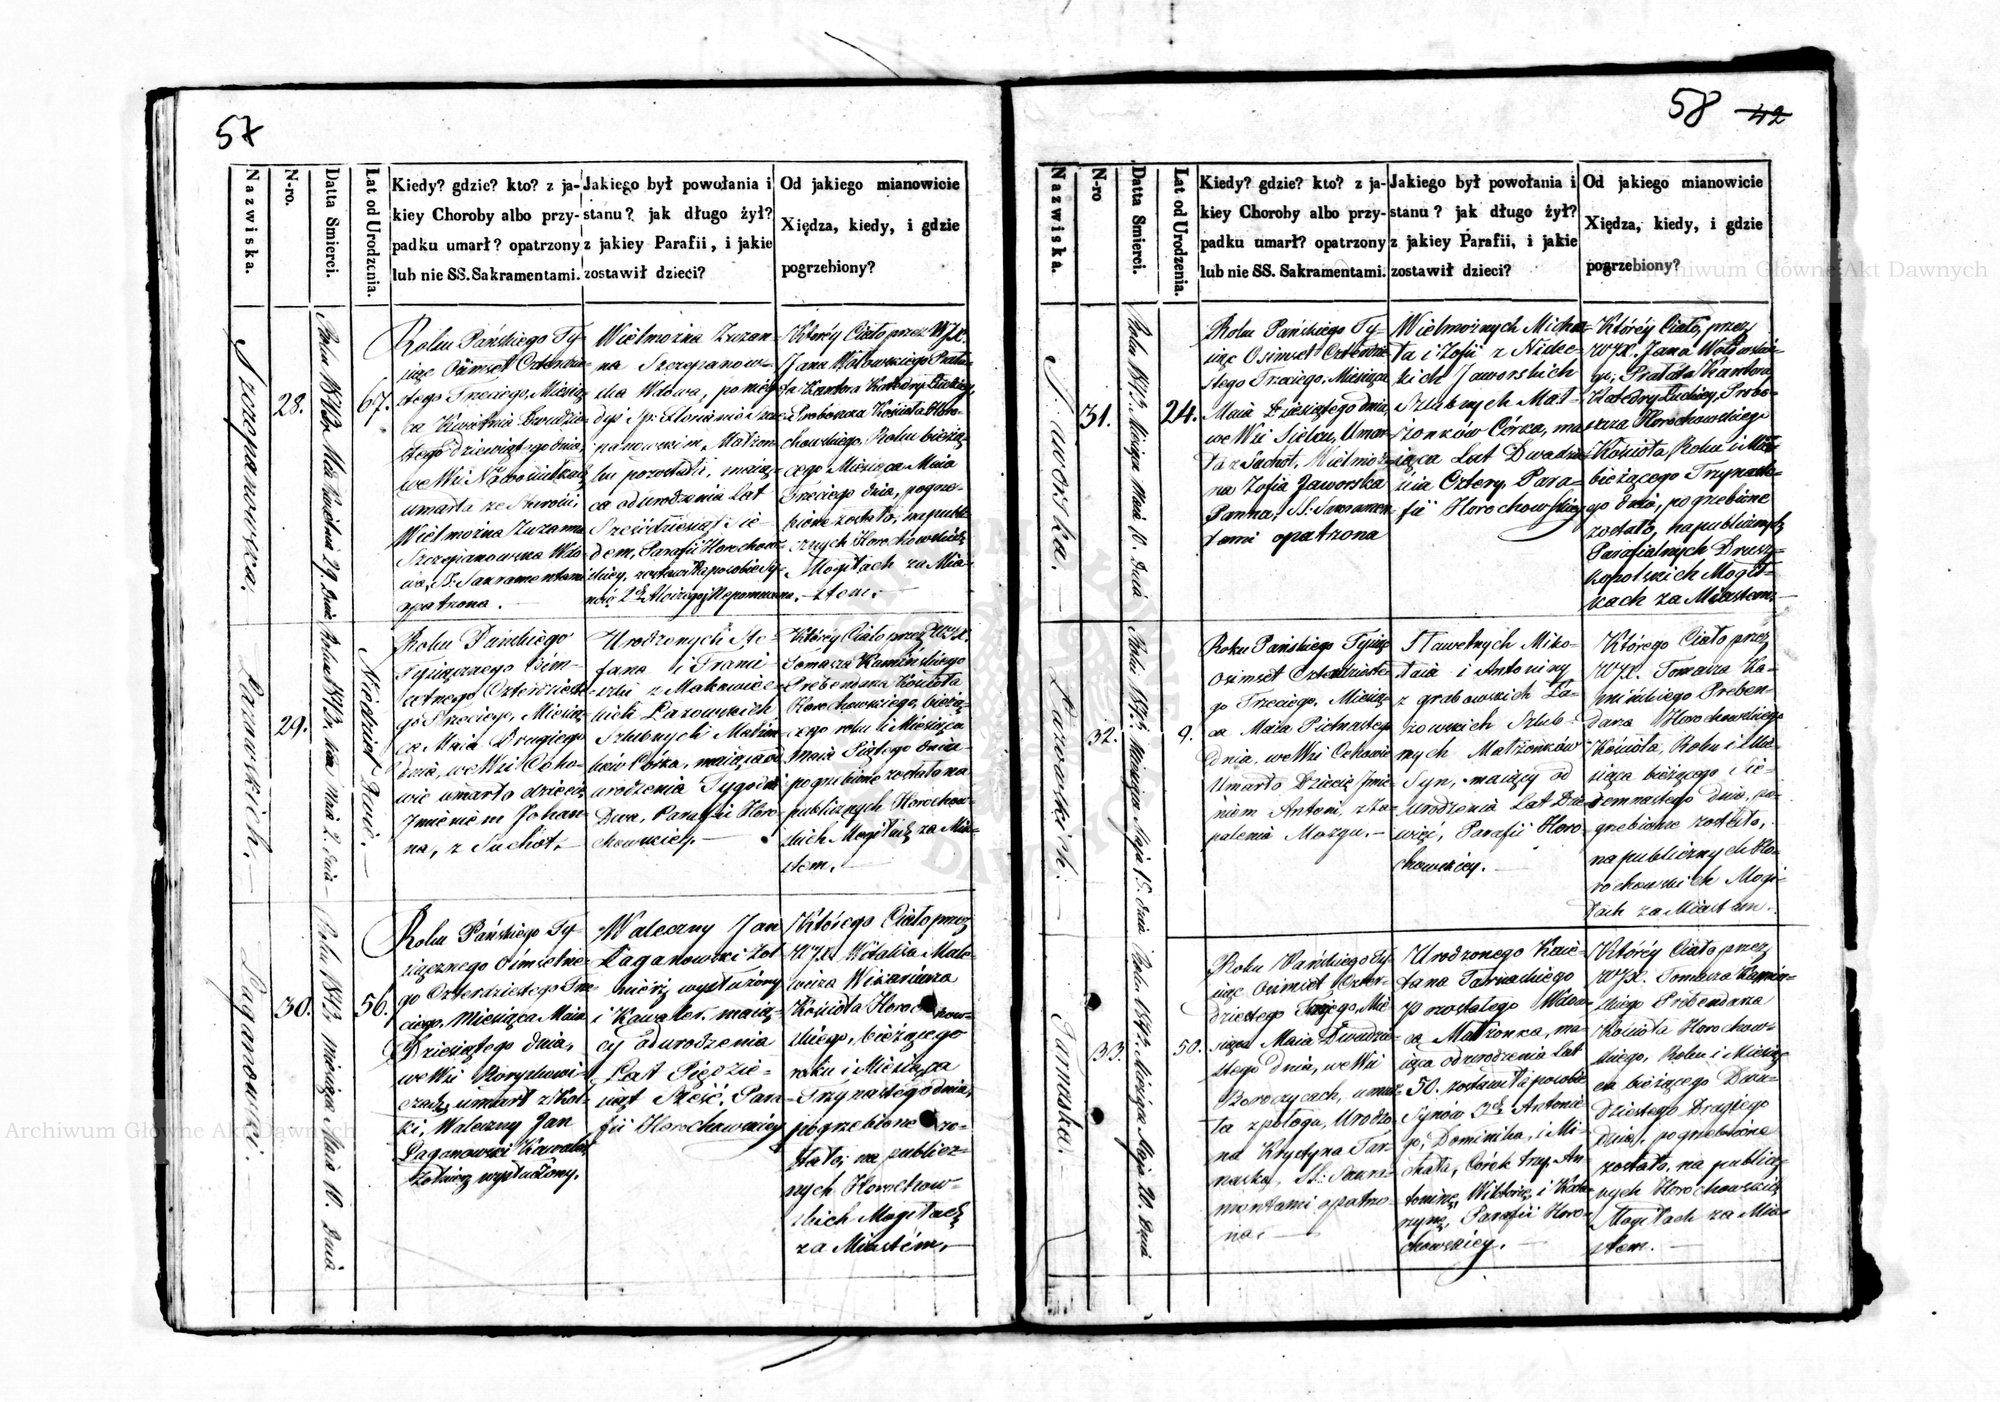 57
Nazwiska.
N-ro.
Datta Smierci.
Lat od Urodzenia.
Kiedy? gdzie? kto? z ja-
kiey Choroby albo przy-
padku umarł? opatrzony
lub nie SS. Sakramentami.
Jakiego był powołania i
stanu? jak długo żył?
z jakiey Parafii, i jakie
zostawił dzieci?
Od jakiego mianowicie
Xiędza, kiedy, i gdzie
pogrzebiony?
Szczepanowska.
28.
Roku 1843. Mca Kwietnia 29. Dnia
67.
Roku Pańskiego Ty-
siąc Ośmset Czterdzie-
stego Trzeciego, Miesią-
ca Kwietnia Dwudzie-
stego dziewiątego dnia,
we Wsi
umarła ze Starości,
Wielmożna Zuzanna
Szczepanowska Wdo-
wa, S.S. Sakramentami
opatrzona.
Wielmożna Zuzan-
na Szczepanow-
ska Wdowa, po nieg-
dyś Sp: Floriania Szcze-
panowskim, Małżon-
ku pozostała, maią-
ca od urodzenia Lat
Sześćdziesiąt Sie-
dem, Parafii Horochow-
skiey, zostawiła po sobie Sy-
nów 2ch
Którey Ciało przez WJX.
Jana Wołowskiego Prała-
ta Kantora Katedry Łuckiey,
Proboszcza Kościoła Horo-
chowskiego, Roku bieżą-
cego Miesiąca Maia
Trzeciego dnia, pogrze-
bione zostało, na publi-
cznych Horochowskich
Mogiłach za Mia-
stem.
Łazowskich.
29.
Roku 1843. Mca Maia 2. Dnia
Niedziel Dwie.
Roku Pańskiego
Tysiącznego Ośm-
setnego Czterdzieste-
go Trzeciego, Miesią-
ca Maia Drugiego
dnia, we Wsi Ocho-
wie umarło dziecie
Imieniem Johan-
na, z Suchot.
Urodzonych Ste-
fana i Franci-
szki z Makowiec-
kich Łazowskich
Szlubnych Małżon-
ków Córka, maiąca od
urodzenia Tygodni
Dwa, Parafii Horo-
chowskiey.
Którey Ciało przez WJX.
Tomasza Kamińskiego
Prebendarza Kościoła
Horochowskiego, bieżą-
cego roku i Miesiąca
Maia Piątego dnia
pogrzebione zostało na
publicznych Horochow-
skich Mogiłach za Mia-
stem.
Łaganowski.
30.
Roku 1843. Miesiąca Maia 10. Dnia
56.
Roku Pańskiego Ty-
siącznego Ośmsetne-
go Czterdziestego Trze-
ciego, Miesiąca Maia
Dziesiątego dnia,
we Wsi
umarł z Kol-
ki, Waleczny Jan
Łaganowski Kawaler
żołnierz wysłużony.
Waleczny Jan
Łaganowski Żoł-
nierz wysłużony
i Kawaler. maią-
cy od urodzenia
Lat Pięćdzie-
siąt Sześć, Para-
fii Horochowskiey
Którego Ciało przez
WJX. Witalisa Male-
wicza Wikariusza
Kościoła Horochow-
skiego, bieżącego
roku i Miesiąca
Trzynastego dnia,
pogrzebione zo-
stało, na publicz-
nych Horochow-
skich Mogiłach
za Miastem.
58 42
Nazwiska.
N-ro
Datta Smierci.
Lat od Urodzenia.
Kiedy? gdzie? kto? z ja-
kiey Choroby albo przy-
padku umarł? opatrzony
lub nie SS. Sakramentami.
Jakiego był powołania i
stanu? jak długo żył?
z jakiey Parafii, i jakie
zostawił dzieci?
Od jakiego mianowicie
Xiędza, kiedy, i gdzie
pogrzebiony?
Jaworska.
31.
Roku 1843. Miesiąca Maia 10. Dnia
24.
Roku Pańskiego Ty-
siąc Ośmset Czterdzie-
stego Trzeciego, Miesiąca
Maia Dziesiątego dnia,
we Wsi Sielcu, Umar-
ła z Suchot, Wielmoż-
na Zofia Jaworska
Panna, SS. Sakramen-
tami opatrzona
Wielmożnych Micha-
ła i Zofii z Nidec-
kich Jaworskich
Szlubnych Mał-
żonków Córka, ma-
iąca Lat Dwadzie-
ścia Cztery, Para-
fii Horochowskiey
Którey Ciało, przez
WJX. Jana Wołowskie-
go, Prałata Kantora
Katedry Łuckiey, Probo-
szcza Horochowskiego
Kościoła, Roku i Mca
bieżącego Trzynaste-
go dnia, pogrzebione
zostało, na publicznych
Parafialnych Drusz-
kopolskich Mogił-
kach za Miastem.
Łazowskich.
32.
Roku 1843. Miesiąca Maja 15. Dnia
9.
Roku Pańskiego Tysiąc
Ośmset Czterdzieste-
go Trzeciego, Miesią-
ca Maia Pietnastego
Dnia, we Wsi Ochowie
Umarło Dziecie Imie-
niem Antoni, z Za-
palenia Mózgu.
Sławetnych Miko-
łaia i Antoniny
z Grabowskich Ła-
zowskich Szlub-
nych Małżonków
Syn, maiący od
urodzenia Lat Dzie-
więć, Parafii Horo-
chowskiey.
Którego Ciało przez
WJX. Tomasza Ka-
mińskiego Preben-
darza Horochowskiego
Kościoła, Roku i Mie-
siąca bieżącego Sie-
demnastego dnia, po-
grzebione zostało,
na publicznych Ho-
rochowskich Mogi-
łach za Miastem.
Tarnaska.
33.
Roku 1843. Miesiąca Maja 20. Dnia
50.
Roku Pańskiego Ty-
siąc Ośmset Czter-
dziestego Trzeciego, Mie-
siąca Maia Dwudzie-
stego dnia, we Wsi
Boroczycach, umar-
ła z połogu, Urodzo-
na Krystyna Tar-
naska, SS. Sakra-
mentami opatrzo-
na.
Urodzonego Kaie-
tana Tarnaskiego
Pozostałego Wdow-
ca Małżonka, ma-
iąca od urodzenia Lat
50. zostawiła po sobie
Synów 3ch Antonie-
go, Dominika, i Mi-
chała, Córek trzy, An-
toninę, Wiktorię, i Kata-
rzynę, Parafii Horo-
chowskiey.
Którey Ciało przez
WJX. Tomasza Kamiń-
skiego Prebendarza
Kościoła Horochow-
skiego, Roku i Miesią-
ca bieżącego Dwu-
dziestego Drugiego
Dnia, pogrzebione
zostało, na publicz-
nych Horochowskich
Mogiłach za Mia-
stem.
Archiwum Główne Akt Dawnych
Archiwum Główne Akt Dawnych